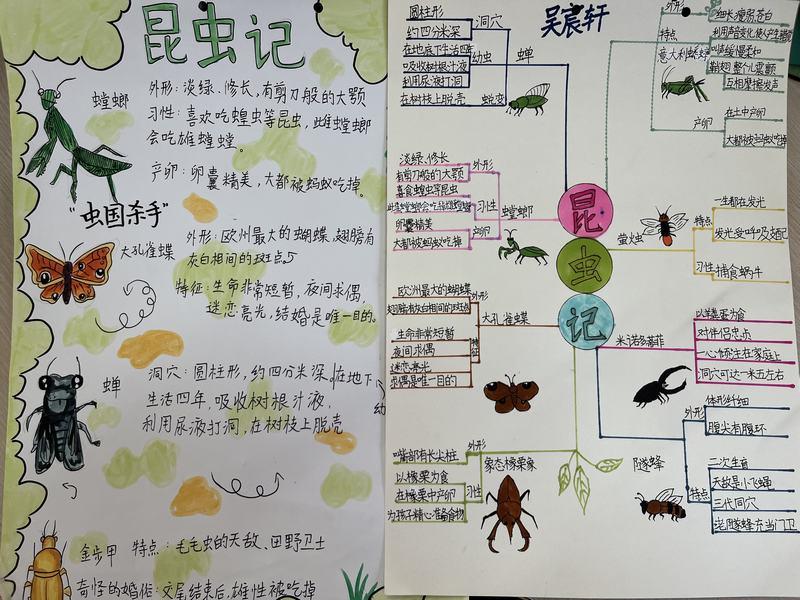 昆虫记
螳螂
外形:淡绿、修长,有剪刀般的大颚
习性:喜欢吃蝗虫等昆虫,雌螳螂
会吃雄螳螂。
产卵:卵囊精美,大都被蚂蚁吃掉。
"虫国杀手"
大孔雀蝶
外形:欧州最大的蝴蝶,翅膀有
灰白相间的斑点。
特征:生命非常短暂,夜间求偶,
迷恋亮光,结婚是唯一目的。
蝉
洞穴:圆柱形,约四分米深,在地下
生活四年,吸收树根汁液,
利用尿液打洞,在树枝上脱壳
金步甲 特点:毛毛虫的天敌、田野卫士
奇怪的婚俗:交尾结束后,雄性被吃掉
吴宸轩
昆
虫
记
蝉
洞穴
圆柱形
约四分米深
幼虫
在地底下生活四年
吸收树根汁液
利用尿液打洞
蜕变
在树枝上脱壳
螳螂
外形
淡绿、修长
有剪刀般的大颚
习性
喜食蝗虫等昆虫
产卵
卵囊精美
大都被蚂蚁吃掉
大孔雀蝶
外形
欧州最大的蝴蝶
翅膀有灰白相间的斑点
特征
生命非常短暂
夜间求偶
迷恋亮光
求偶是唯一目的
象态橡栗象
外形
嘴部有长尖桩
习性
以橡栗为食
在橡栗中产卵
为孩子精心准备食物
意大利蟋蟀
外形
细长、瘦弱、苍白
特点
叫声缓慢柔和
互相摩擦发声
产卵
在土中产卵
大都被蚂蚁吃掉
萤火虫
特点
一生都在发光
发光受呼吸支配
习性
捕食蜗牛
米诺多蒂菲
以羊粪蛋为食
对伴侣忠贞
一心倾注在家庭上
洞穴可达一米五左右
隧蜂
外形
体形纤细
腹尖有腹环
特点
二次生育
天敌是小飞蝇
三代同穴
老隧蜂充当门卫